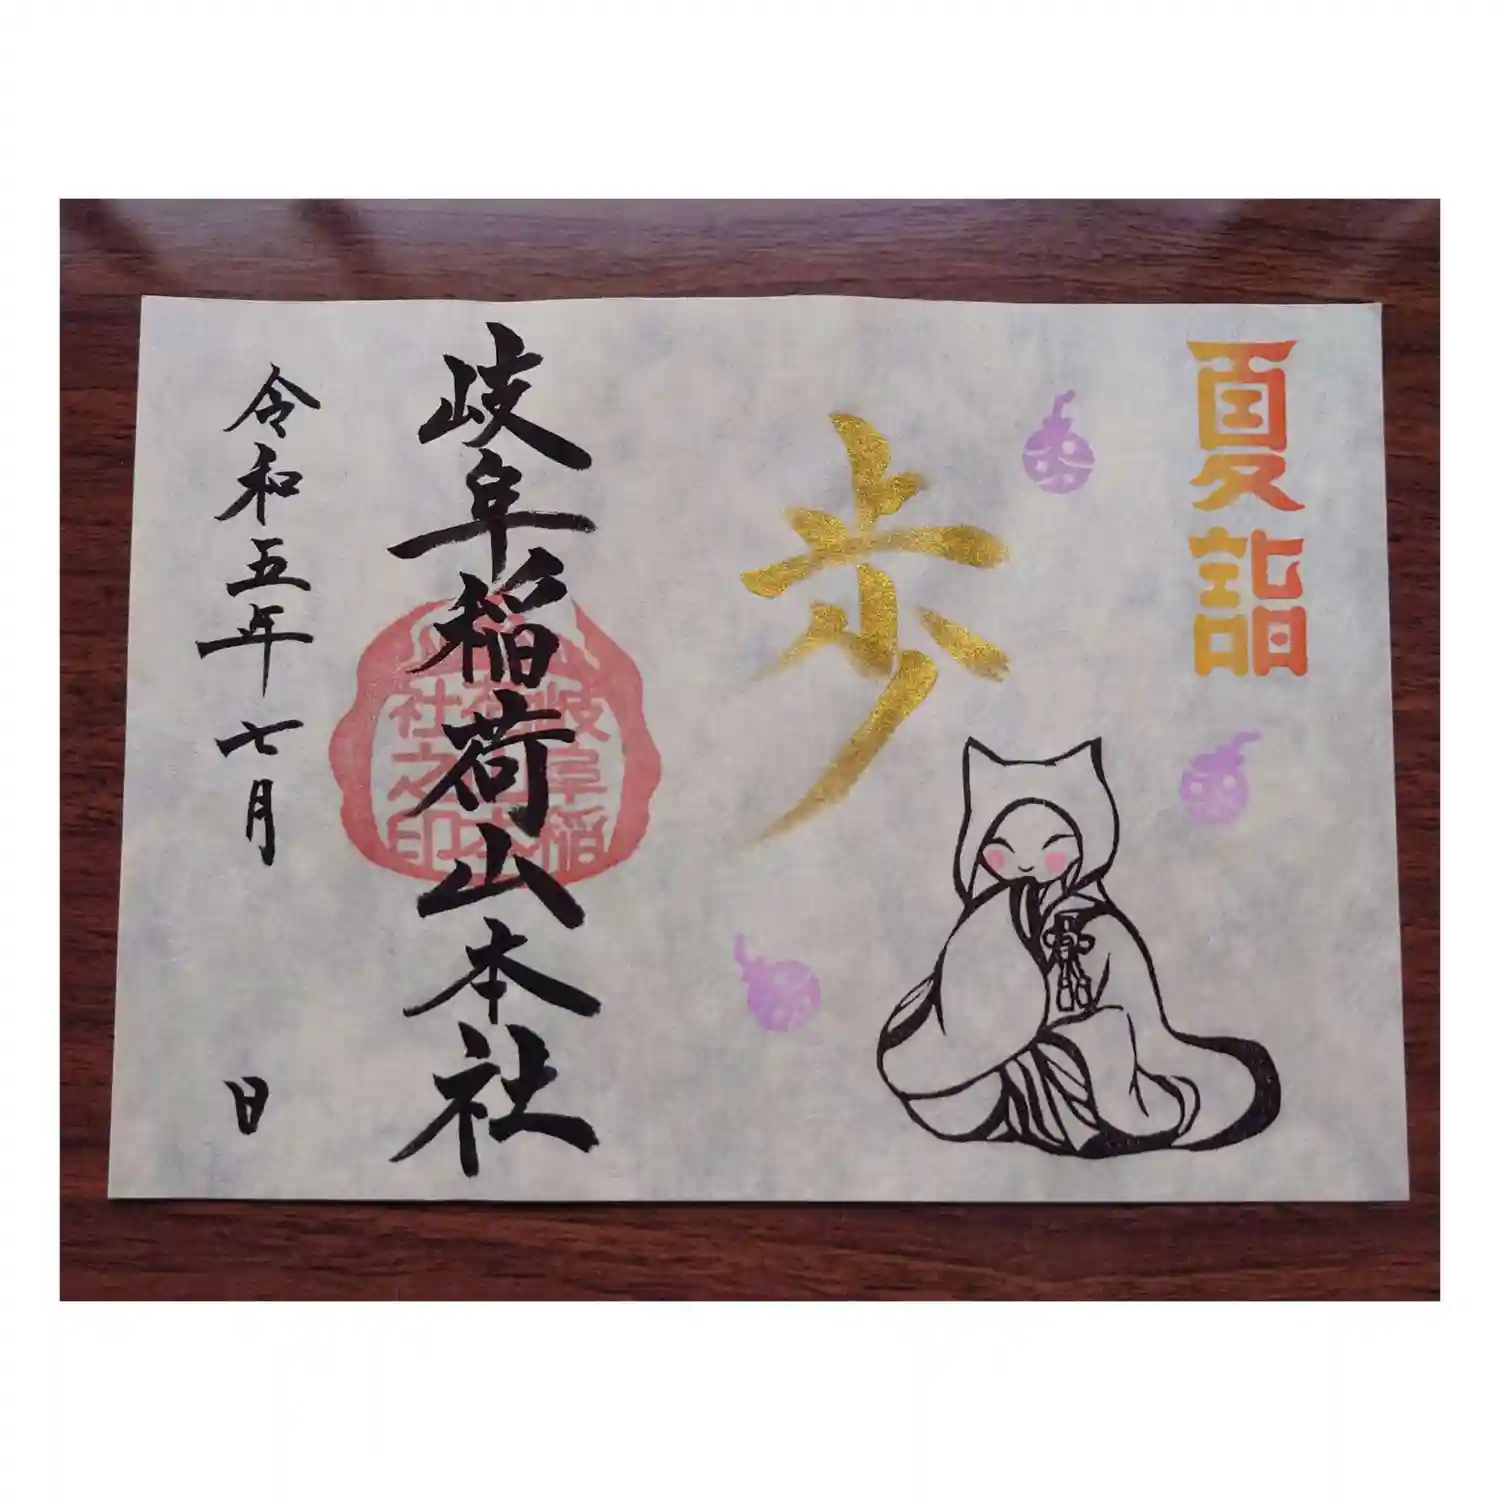 夏詣
歩
岐阜稲荷山本社
岐阜稲
荷山本
社之印
令和五年七月 日